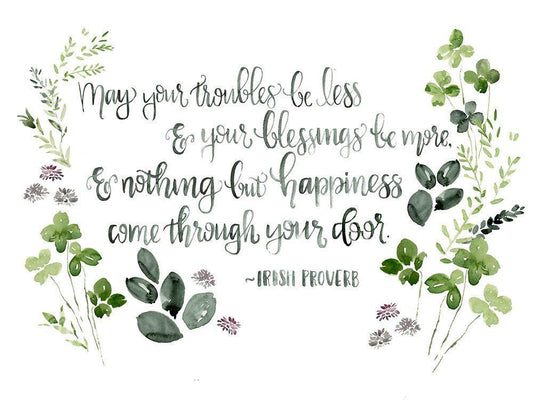 May your troubles be less
& your blessings be more,
& nothing but happiness
come through your door.
~IRISH PROVERB